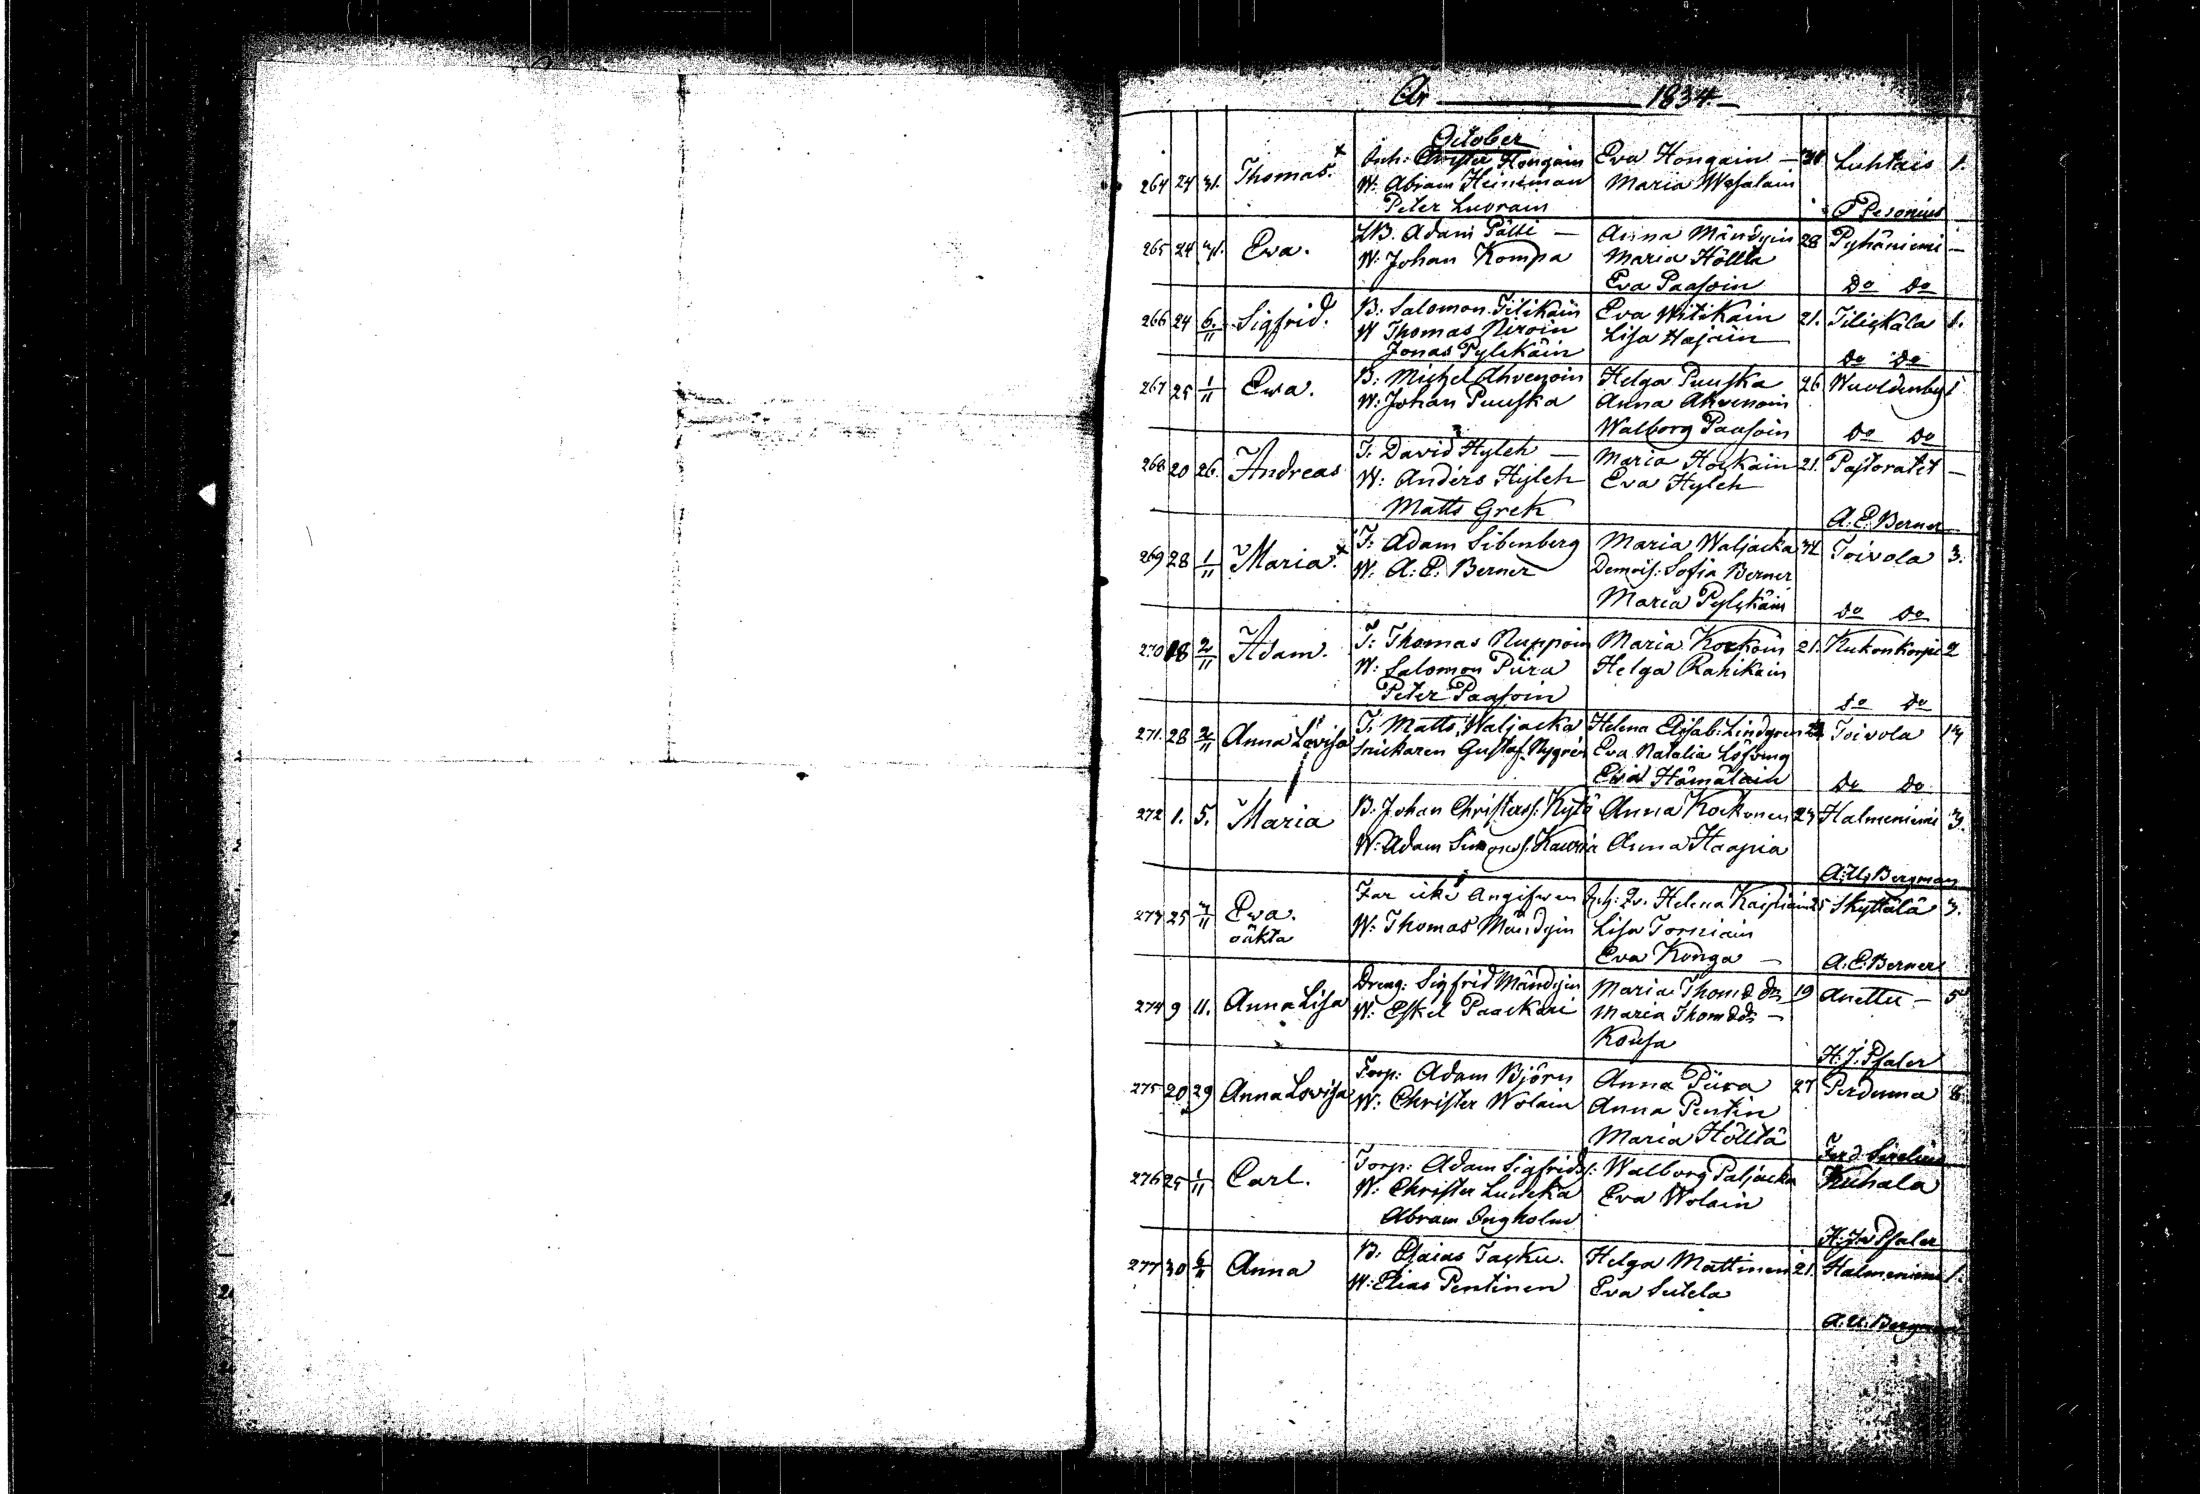 År 1834
October
264 24 31. Thomas. Inh: Christer Hongain Eva Hongain 30 Luhtais 1.
W: Abram Heiniman Maria Wesalain
Peter Luorain P Pesonius
265 24 31. Ewa. LB. Adam Pätti Anna Mändyin 28 Pyhäniemi
W: Johan Kompa Maria Hölltä
Eva Paasoin Do Do
266 24 6/11 Sigfrid. B: Salomon Tilikäin Eva Witikäin 21. Tiliskäla 1.
W Thomas Niroin Lisa Hajäin
Jonas Pylekäin Do Do
267 25 1/11 Ewa. B: Michel Ahvenoin Helga Puuska 26 Wuoldenby 1
W: Johan Puuska Anna Ahvenoin
Walborg Paasoin Do Do
268 20 26. Andreas T: David Hyleh Maria Hoskain 21. Pastoratet
W: Anders Hyleh Eva Hyleh
Matts Grek A: E: Berner
269 28 1/11 Maria. T: Adam Sibenberg Maria Waljacka 34 Toivola 3.
W: A: E: Berner Demois: Sofia Berner
Maria Pylskäin Do Do
270 28 2/11 Adam. T: Thomas Nuppoin Maria Kockoin 21. Kukonkorpi 2
W: Salomon Piira Helga Rahikain
Peter Paasoin Do Do
271. 28 2/11 Anna Lovisa T: Matts Waljacka Helena Elisab: Lindgren Toivola
Snickaren Gustaf Nygrén Eva Natalia Löfving
Eva Hämäläin Do Do
272 1. 5. Maria B: Johan Christers: Kytö Anna Kockonen 23 Halmeniemi 3.
W: Adam Simons: Kauria Anna Haapia
A: U: Bergman
273 25 3/11 Ewa. Far icke Angifwen Inh: Qv. Helena Kaipiain 25 Skyttälä 3.
oäkta W: Thomas Mändyin Lisa Torniain
Eva Konga A: E: Berner
274 9 11. Anna Lisa Dreng: Sigfrid Mändyin Maria Thomædr 19 Anettu 5
W: Eskel Paackari Maria Thomædr
Kousa
H: J: Psaler
275 20 29 Anna Lovisa Torp: Adam Björn Anna Piira 27 Perduma 2.
W: Christer Wolain Anna Pentin
Maria Hölltä Ferd. Sirelius
276 25 1/11 Carl. Torp: Adam Sigfrids: Walborg Paljacka Kuhala
W: Christer Luucka Eva Wolain
Abram Ingholm H: J: Psaler
277 30 6/11 Anna B: Esaias Tasku. Helga Mattinen 21. Halmeniemi 1.
W: Elias Pentinen Eva Sutela
A: U: Bergman